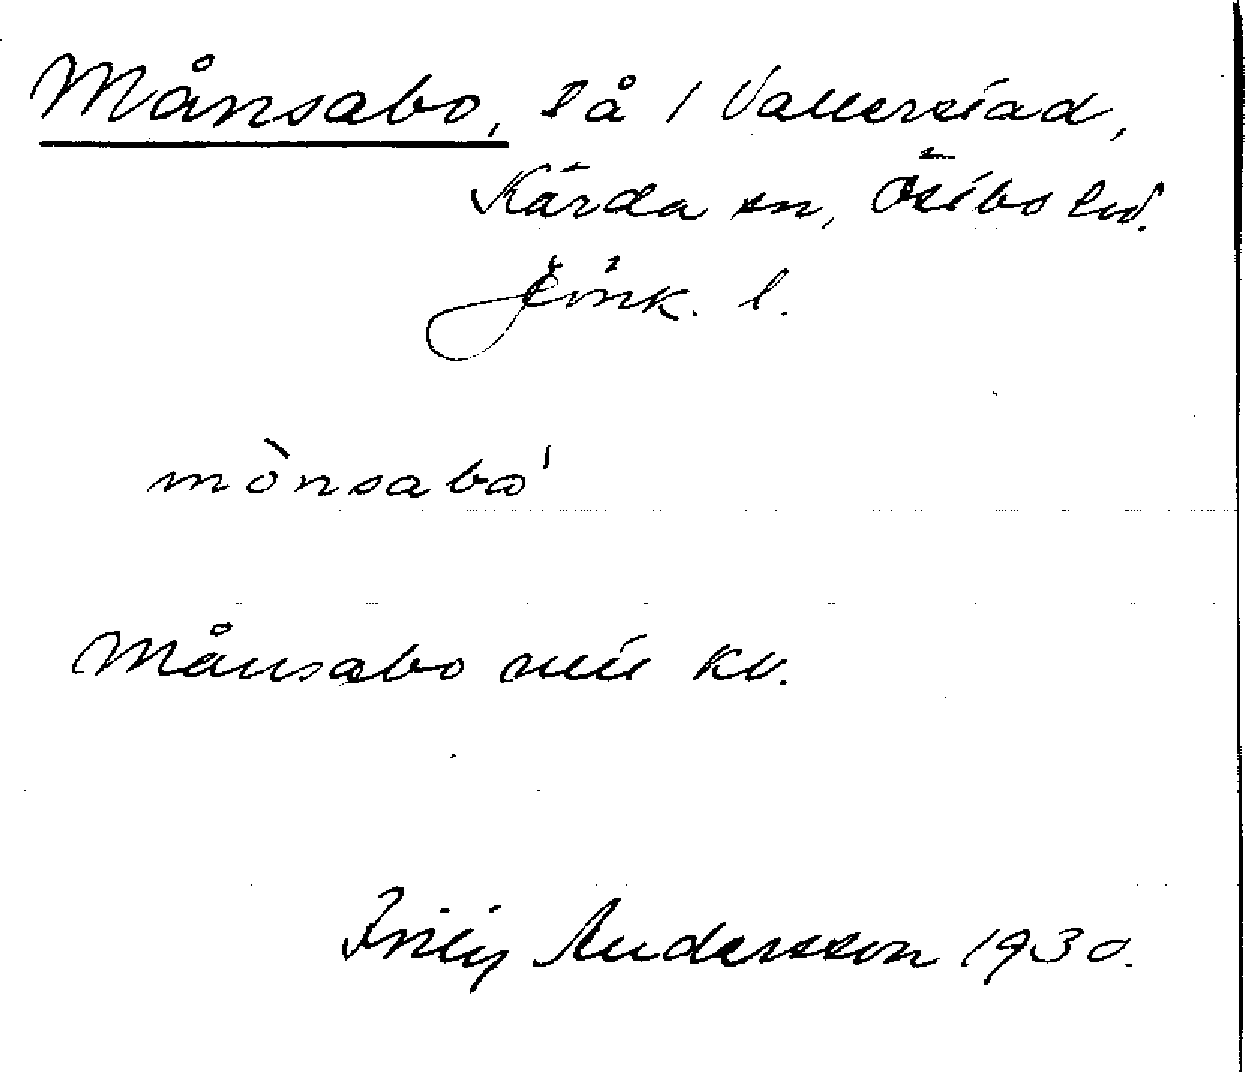 Månsabo, lå i Vallerstad,
Kärda sn, Östbo hd.
Jönk. l.
mònsabo'
Månsabo kv.
Andersson 1930.